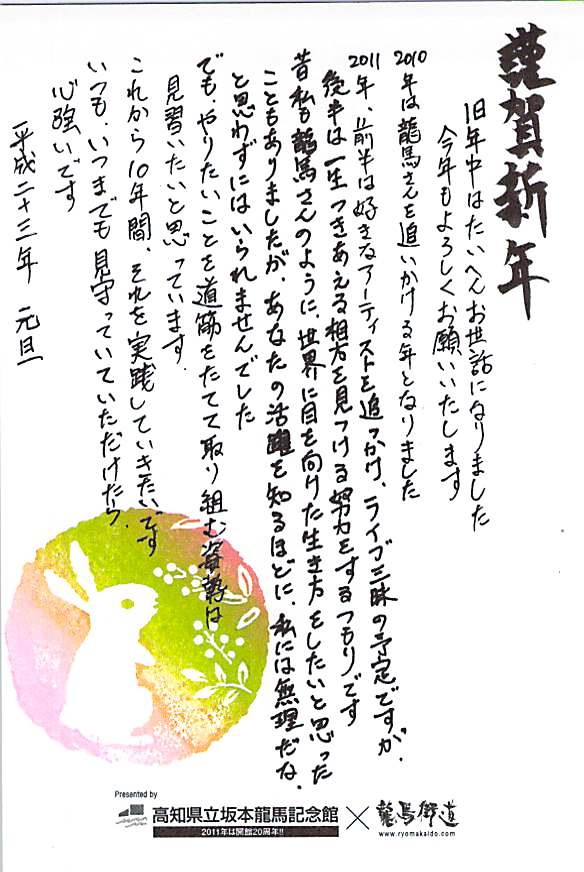 謹賀新年
旧年中はたいへんお世話になりました
今年もよろしくお願いいたします
2010年は龍馬さんを追いかける年となりました
2011年、前半は好きなアーティストを追っかけ、ライブ三昧の予定ですが、
後半は一生つきあえる相方を見つける努力をするつもりです
昔私も龍馬さんのように、世界に目を向けた生き方をしたいと思った
こともありましたが、あなたの活躍を知るほどに、私には無理だな、
と思わずにはいられませんでした
でも、やりたいことを道筋をたてて取り組む姿勢は
見習いたいと思っています.
これから10年間、それを実践していきたいです
いつも、いつまでも見守っていていただけたら、
心強いです
平成二十三年 元旦
Presented by
高知県立坂本龍馬記念館 × 龍馬街道
2011年は開館20周年!!
www.ryomakaido.com